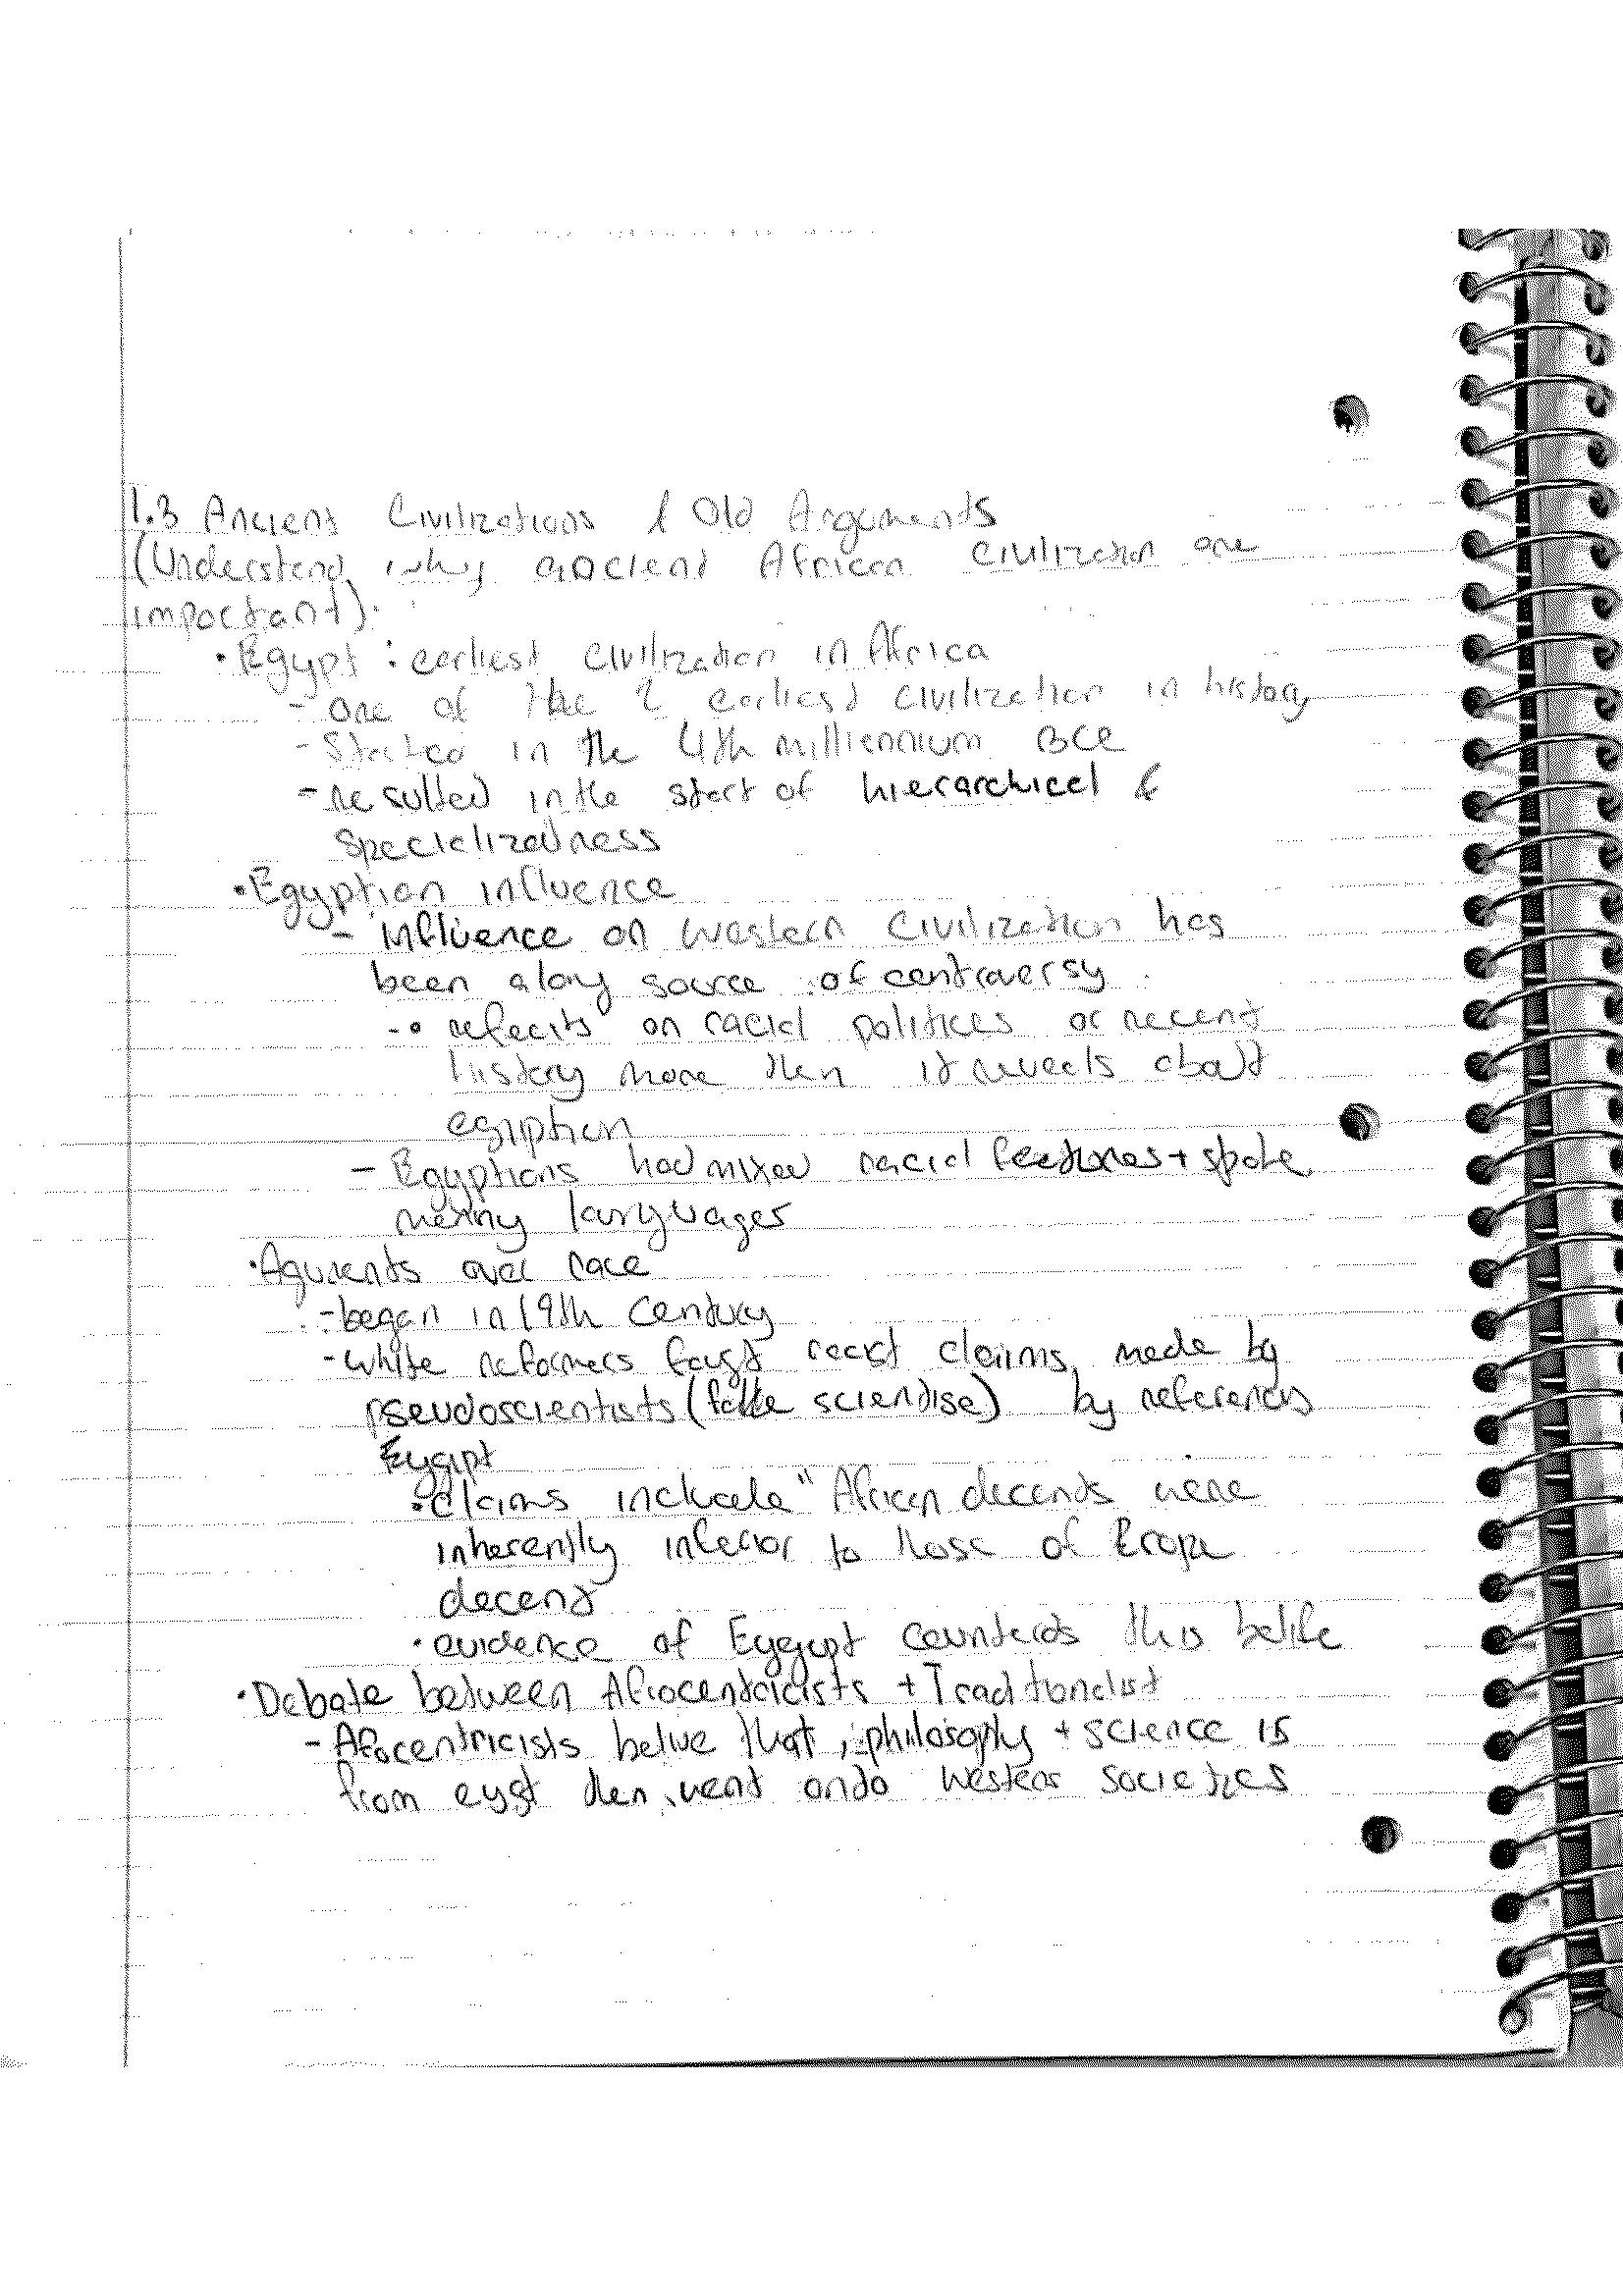 1.3 Ancient Civilizations & Old Arguments
(Understand why ancient African civilization are
important)
• Egypt : earliest civilization in Africa
- one of the 2 earliest civilization in history
- Started in the 4th millennium BCE
- resulted in the start of hierarchical &
specializedness
• Egyption influence
- influence on western civilization has
been a long source of controversy
- • reflects on racial politices or recent
history more then it reveals about
egiption
- Egyptions had mixed racial features + spoke
menny languages
• Aguments over race
- began in 19th Century
- white reformers faught racist claims made by
pseudoscientists (fake scientise) by
Eygipt
• claims include " African decents were
inherently inferior to those of Erope
decent
• evidence of Eygypt counterds this belife
• Debate between Afrocentricists + Traditionalist
- Afocentricists belive that, philosophy + science is
from eygt then went onto western societies